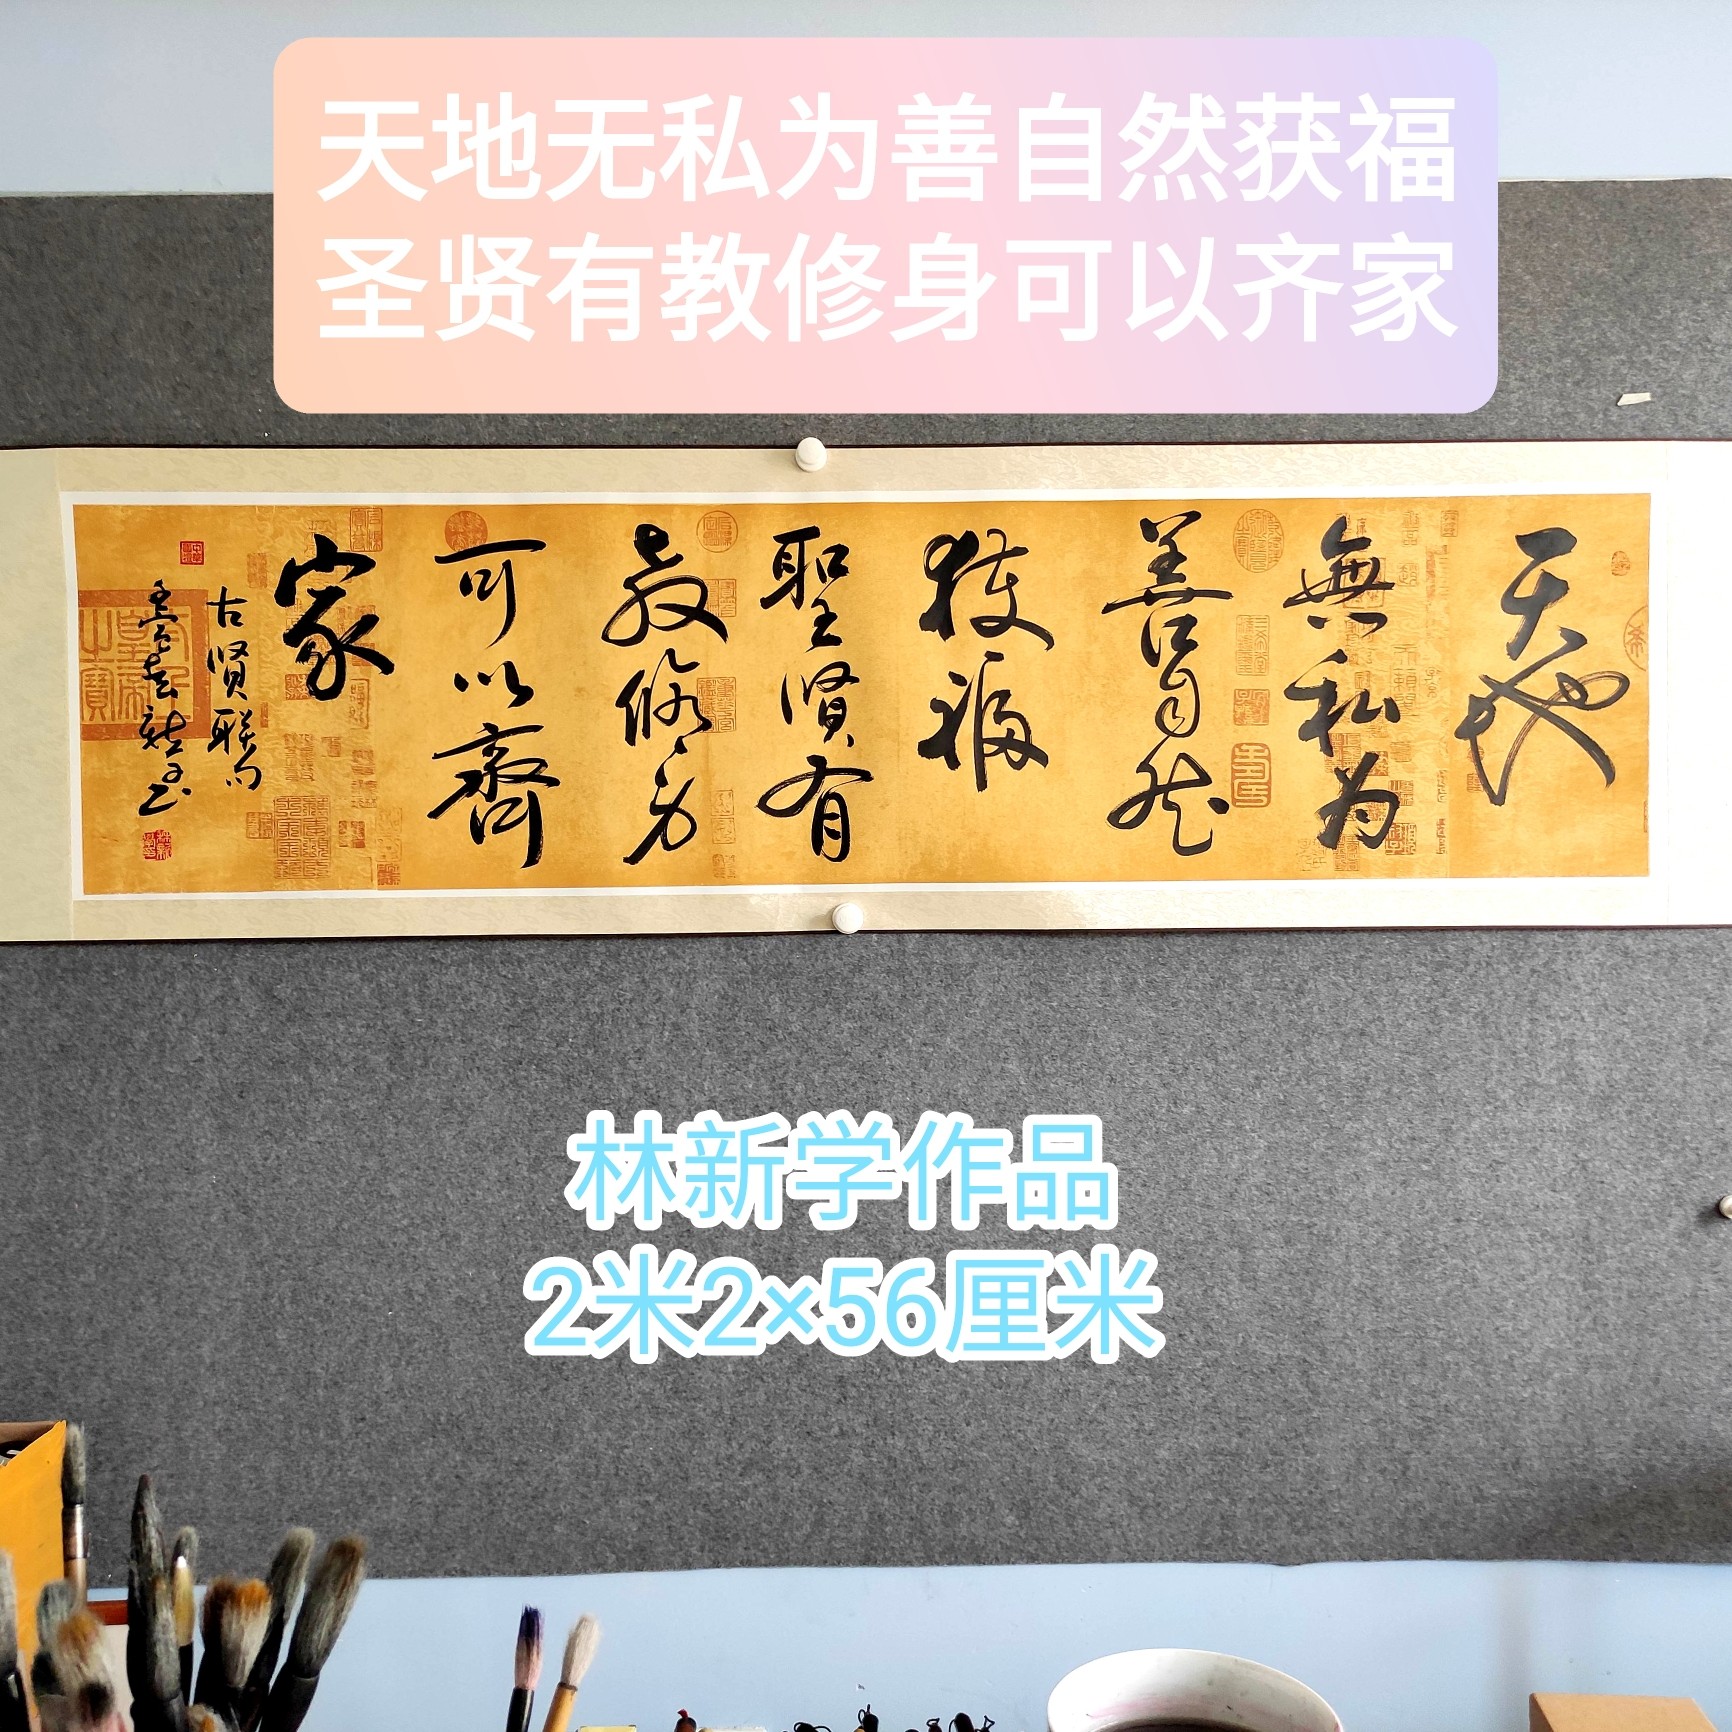 天地无私为善自然获福
圣贤有教修身可以齐家
天地
無私为
善自然
獲福
聖贤有
教修身
可以齊
家
古贤联句
林新学作品
2米2×56厘米